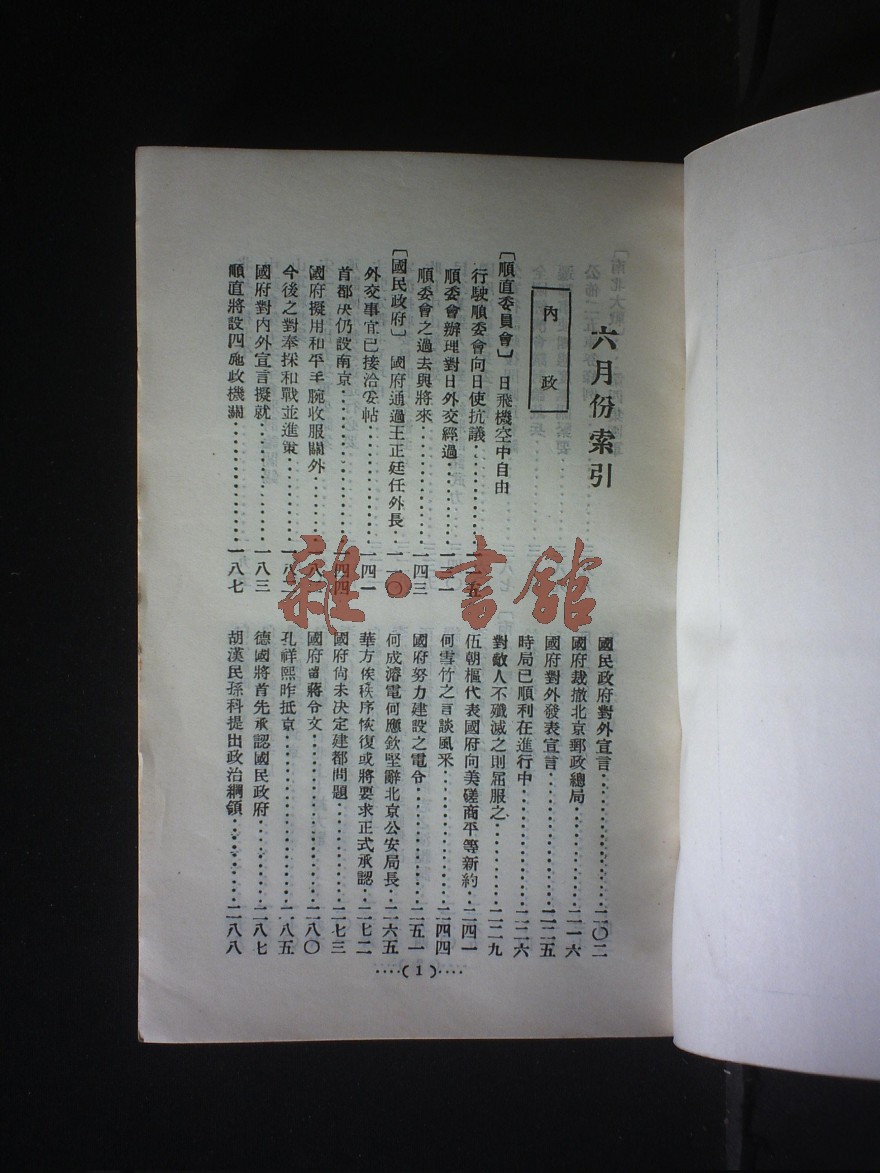 六月份索引
內政
〔順直委員會〕 日飛機空中自由
行駛順委會向日使抗議
順委會辦理對日外交經過
順委會之過去與將來………一四三
〔國民政府〕 國府通過王正廷任外長
外交事宜已接洽妥帖………一四一
首都决仍設南京………一四四
國府擬用和平手腕收服關外
今後之對奉採和戰並進策
國府對內外宣言擬就………一八三
順直將設四施政機關………一八七
國民政府對外宣言………二〇二
國府裁撤北京郵政總局………二一六
國府對外發表宣言………二二五
時局已順利在進行中………二二六
對敵人不殲滅之則屈服之………二二九
伍朝樞代表國府向美磋商平等新約…二四一
何雪竹之言談風采………二四四
國府努力建設之電令………二五一
何成濬電何應欽堅辭北京公安局長…二六五
華方俟秩序恢復或將要求正式承認…二七二
國府尙未决定建都問題………二七三
國府留蔣令文………二八〇
孔祥熙昨抵京………二八五
德國將首先承認國民政府………二八七
胡漢民孫科提出政治綱領………二八八
(1)
雜·書館